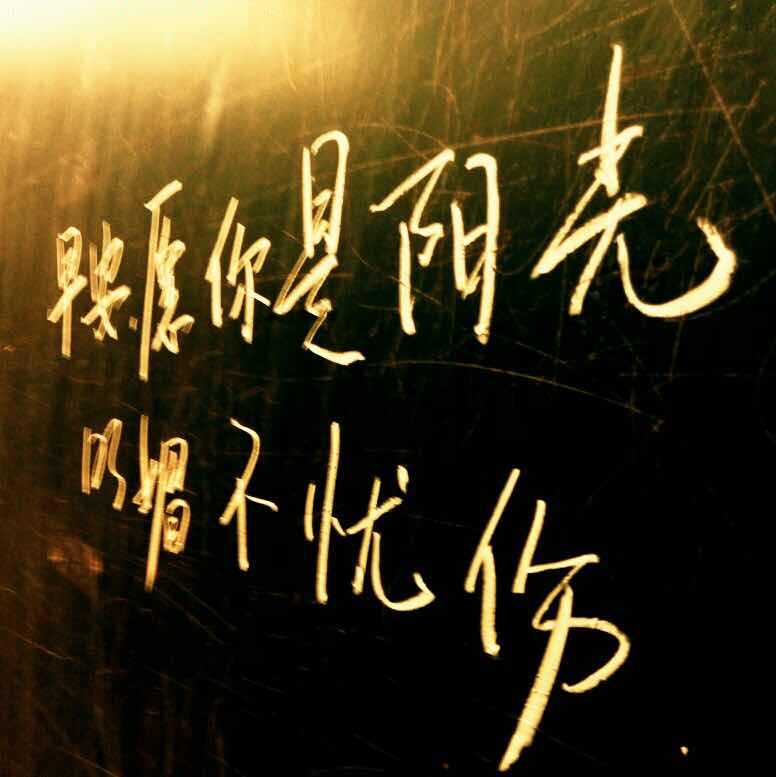 早安.愿你是阳光
明媚不忧伤